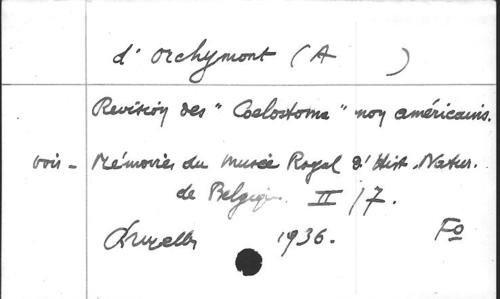 d'Orchymont (A )
Revision des "Coelostoma" non américains.
voir - Mémoires du Musée Royal d'Hist. Natur.
de Belgique. II /7.
Bruxelles 1936. Fo